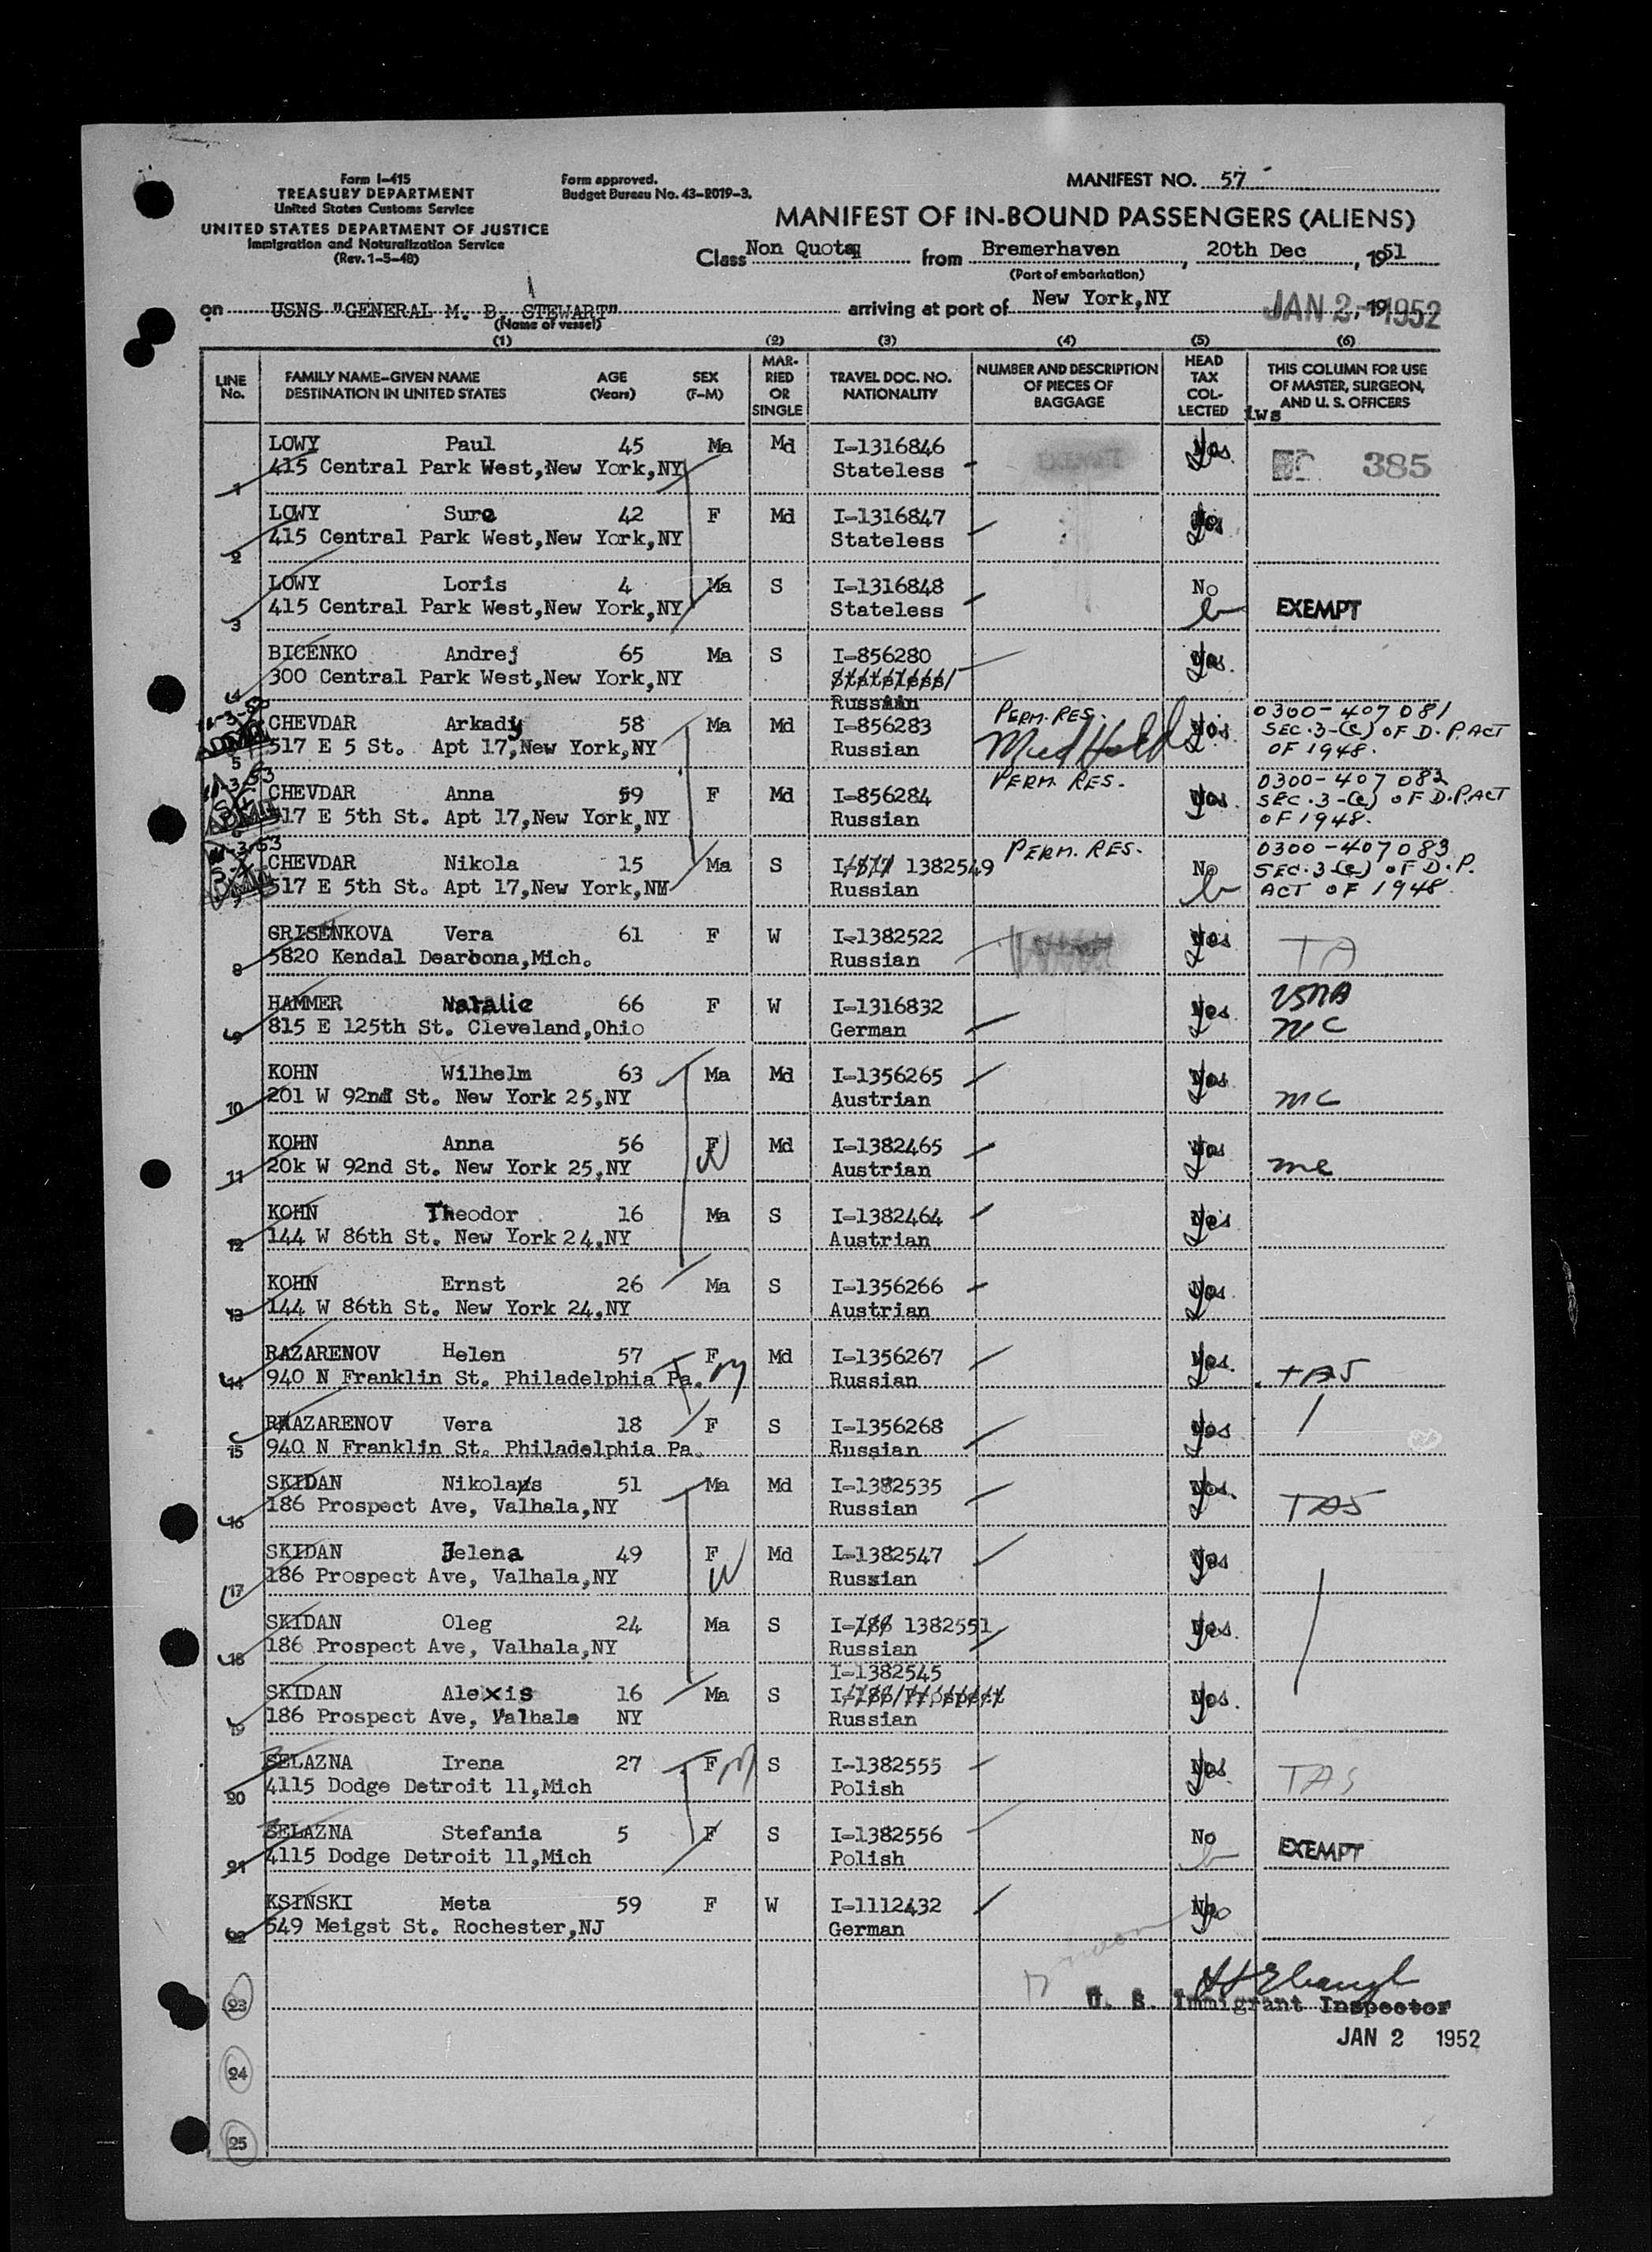 Form I-415
TREASURY DEPARTMENT
United States Customs Service
UNITED STATES DEPARTMENT OF JUSTICE
Immigration and Naturalization Service
(Rev. 1-5-48)
Form approved.
Budget Bureau No. 43-R019-3.
MANIFEST NO. 57
MANIFEST OF IN-BOUND PASSENGERS (ALIENS)
Class Non Quota from Bremerhaven, 20th Dec, 1951
(Port of embarkation)
on USNS "GENERAL M. B. STEWART" arriving at port of New York,NY JAN 2-1952, 19
(Name of vessel)
(1) (2) (3) (4) (5) (6)
LINE No.
FAMILY NAME-GIVEN NAME
DESTINATION IN UNITED STATES
AGE (Years)
SEX (F-M)
MARRIED OR SINGLE
TRAVEL DOC. NO. NATIONALITY
NUMBER AND DESCRIPTION OF PIECES OF BAGGAGE
HEAD TAX COLLECTED
THIS COLUMN FOR USE OF MASTER, SURGEON, AND U. S. OFFICERS
iws
LOWY Paul 45 Ma Md I-1316846 Yes 385
1 415 Central Park West,New York,NY Stateless
LOWY Sure 42 F Md I-1316847 Yes
2 415 Central Park West,New York,NY Stateless
LOWY Loris 4 Ma S I-1316848 No
3 415 Central Park West,New York,NY Stateless EXEMPT
BICENKO Andrej 65 Ma S I-856280 Yes
4 300 Central Park West,New York,NY Stateless
Russian
CHEVDAR Arkady 58 Ma Md I-856283 PERM. RES. Med Hold Yes 0300-407081
5 517 E 5 St. Apt 17,New York,NY Russian SEC.3-(c) OF D.P.ACT
OF 1948.
CHEVDAR Anna 59 F Md I-856284 PERM. RES. Yes 0300-407082
6 517 E 5th St. Apt 17,New York,NY Russian SEC.3-(c) OF D.P.ACT
OF 1948.
CHEVDAR Nikola 15 Ma S I- 1382549 PERM. RES. No 0300-407083
7 517 E 5th St. Apt 17,New York,NY Russian SEC.3-(c) OF D.P.
ACT OF 1948
GRISENKOVA Vera 61 F W I-1382522 Yes TA
8 5820 Kendal Dearbona,Mich. Russian
HAMMER Natalie 66 F W I-1316832 Yes USNA
9 815 E 125th St. Cleveland,Ohio German NC
KOHN Wilhelm 63 Ma Md I-1356265 Yes
10 201 W 92nd St. New York 25,NY Austrian mc
KOHN Anna 56 F Md I-1382465 Yes
11 20k W 92nd St. New York 25,NY Austrian mc
KOHN Theodor 16 Ma S I-1382464 Yes
12 144 W 86th St. New York 24,NY Austrian
KOHN Ernst 26 Ma S I-1356266 Yes
13 144 W 86th St. New York 24,NY Austrian
RAZARENOV Helen 57 F Md I-1356267 Yes
14 940 N Franklin St. Philadelphia Pa. Russian TAS
RAZARENOV Vera 18 F S I-1356268 Yes
15 940 N Franklin St. Philadelphia Pa. Russian
SKIDAN Nikolays 51 Ma Md I-1382535 Yes
16 186 Prospect Ave, Valhala,NY Russian TAS
SKIDAN Jelena 49 F Md I-1382547 Yes
17 186 Prospect Ave, Valhala,NY Russian
SKIDAN Oleg 24 Ma S I-186 1382551 Yes
18 186 Prospect Ave, Valhala,NY Russian
I-1382545
SKIDAN Alexis 16 Ma S I-186 Prospect Yes
19 186 Prospect Ave, Valhala NY Russian
SELAZNA Irena 27 F S I-1382555 Yes TAS
20 4115 Dodge Detroit 11,Mich Polish
SELAZNA Stefania 5 F S I-1382556 No
21 4115 Dodge Detroit 11,Mich Polish EXEMPT
KSINSKI Meta 59 F W I-1112432 No
22 549 Meigst St. Rochester,NJ German
23
U. S. Immigrant Inspector
JAN 2 1952
24
25